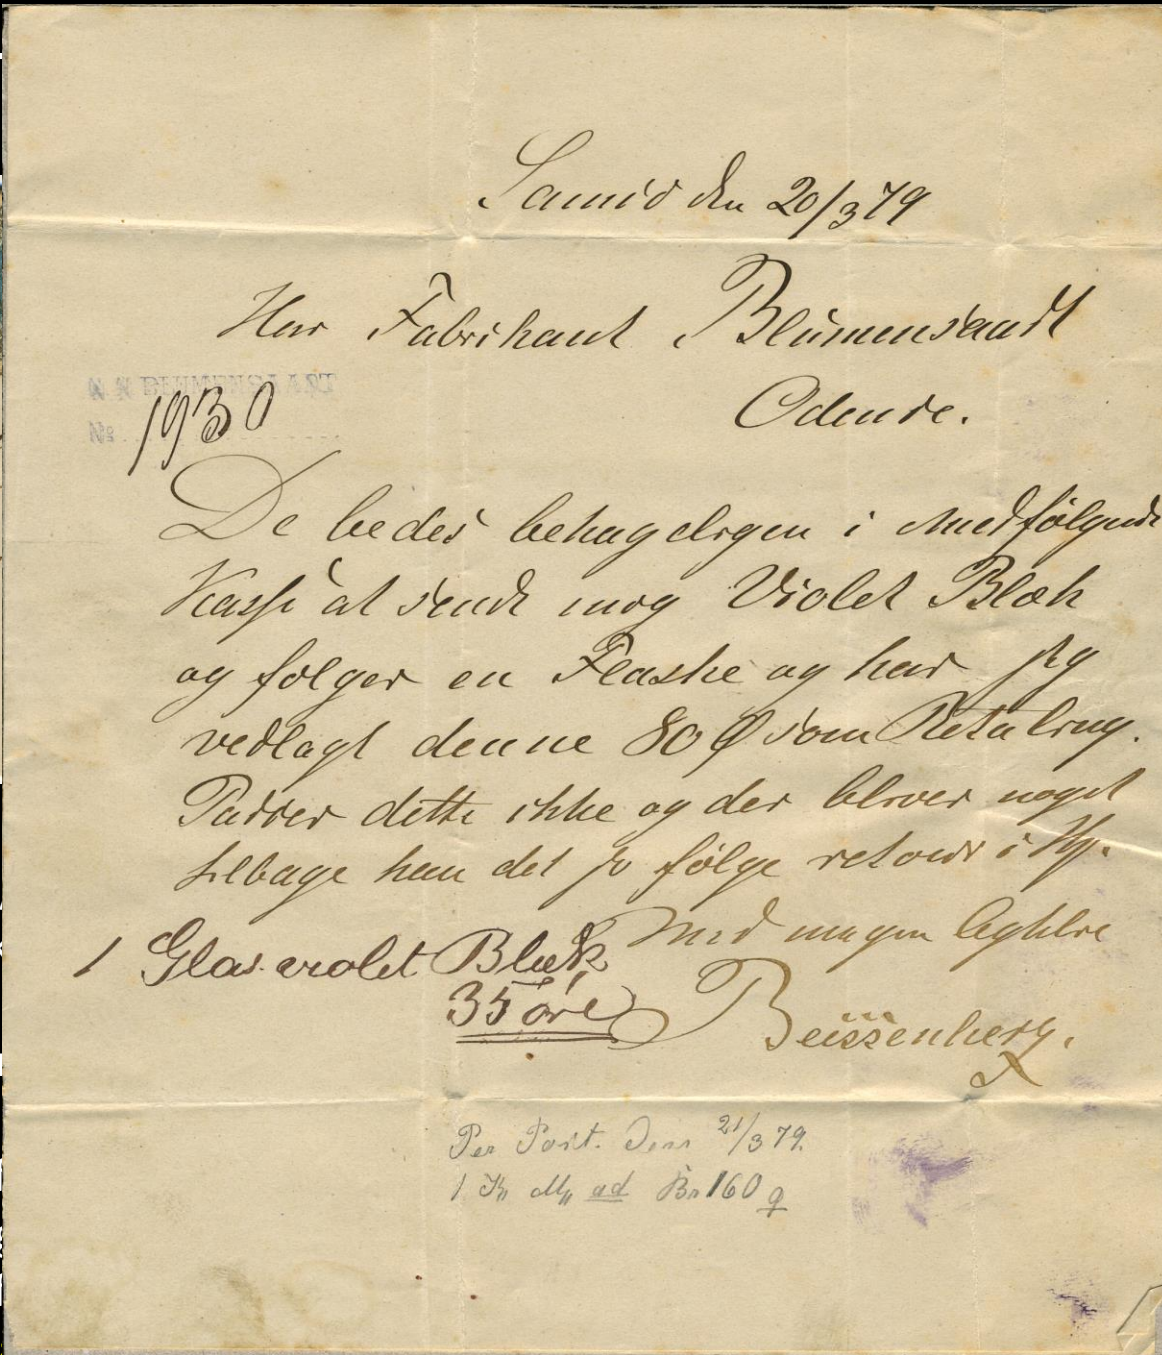 Samsø den 20/3 79
Herr Fabrikant Blumensaadt
Odense.
No 1930
De bedes behageligen i Medfølgende
Kasse at sende mig Violet Blæk
og følger en Flaske og har jeg
vedlagt denne 80 Ø som Betaling.
Passer dette ikke og der bliver noget
tilbage kan det jo følge retour i
Med megen Agtelse
1 Glas violet Blæk
35 øre
Beissenherz.
Per Post. Den 21/3 79.
1 ad 160